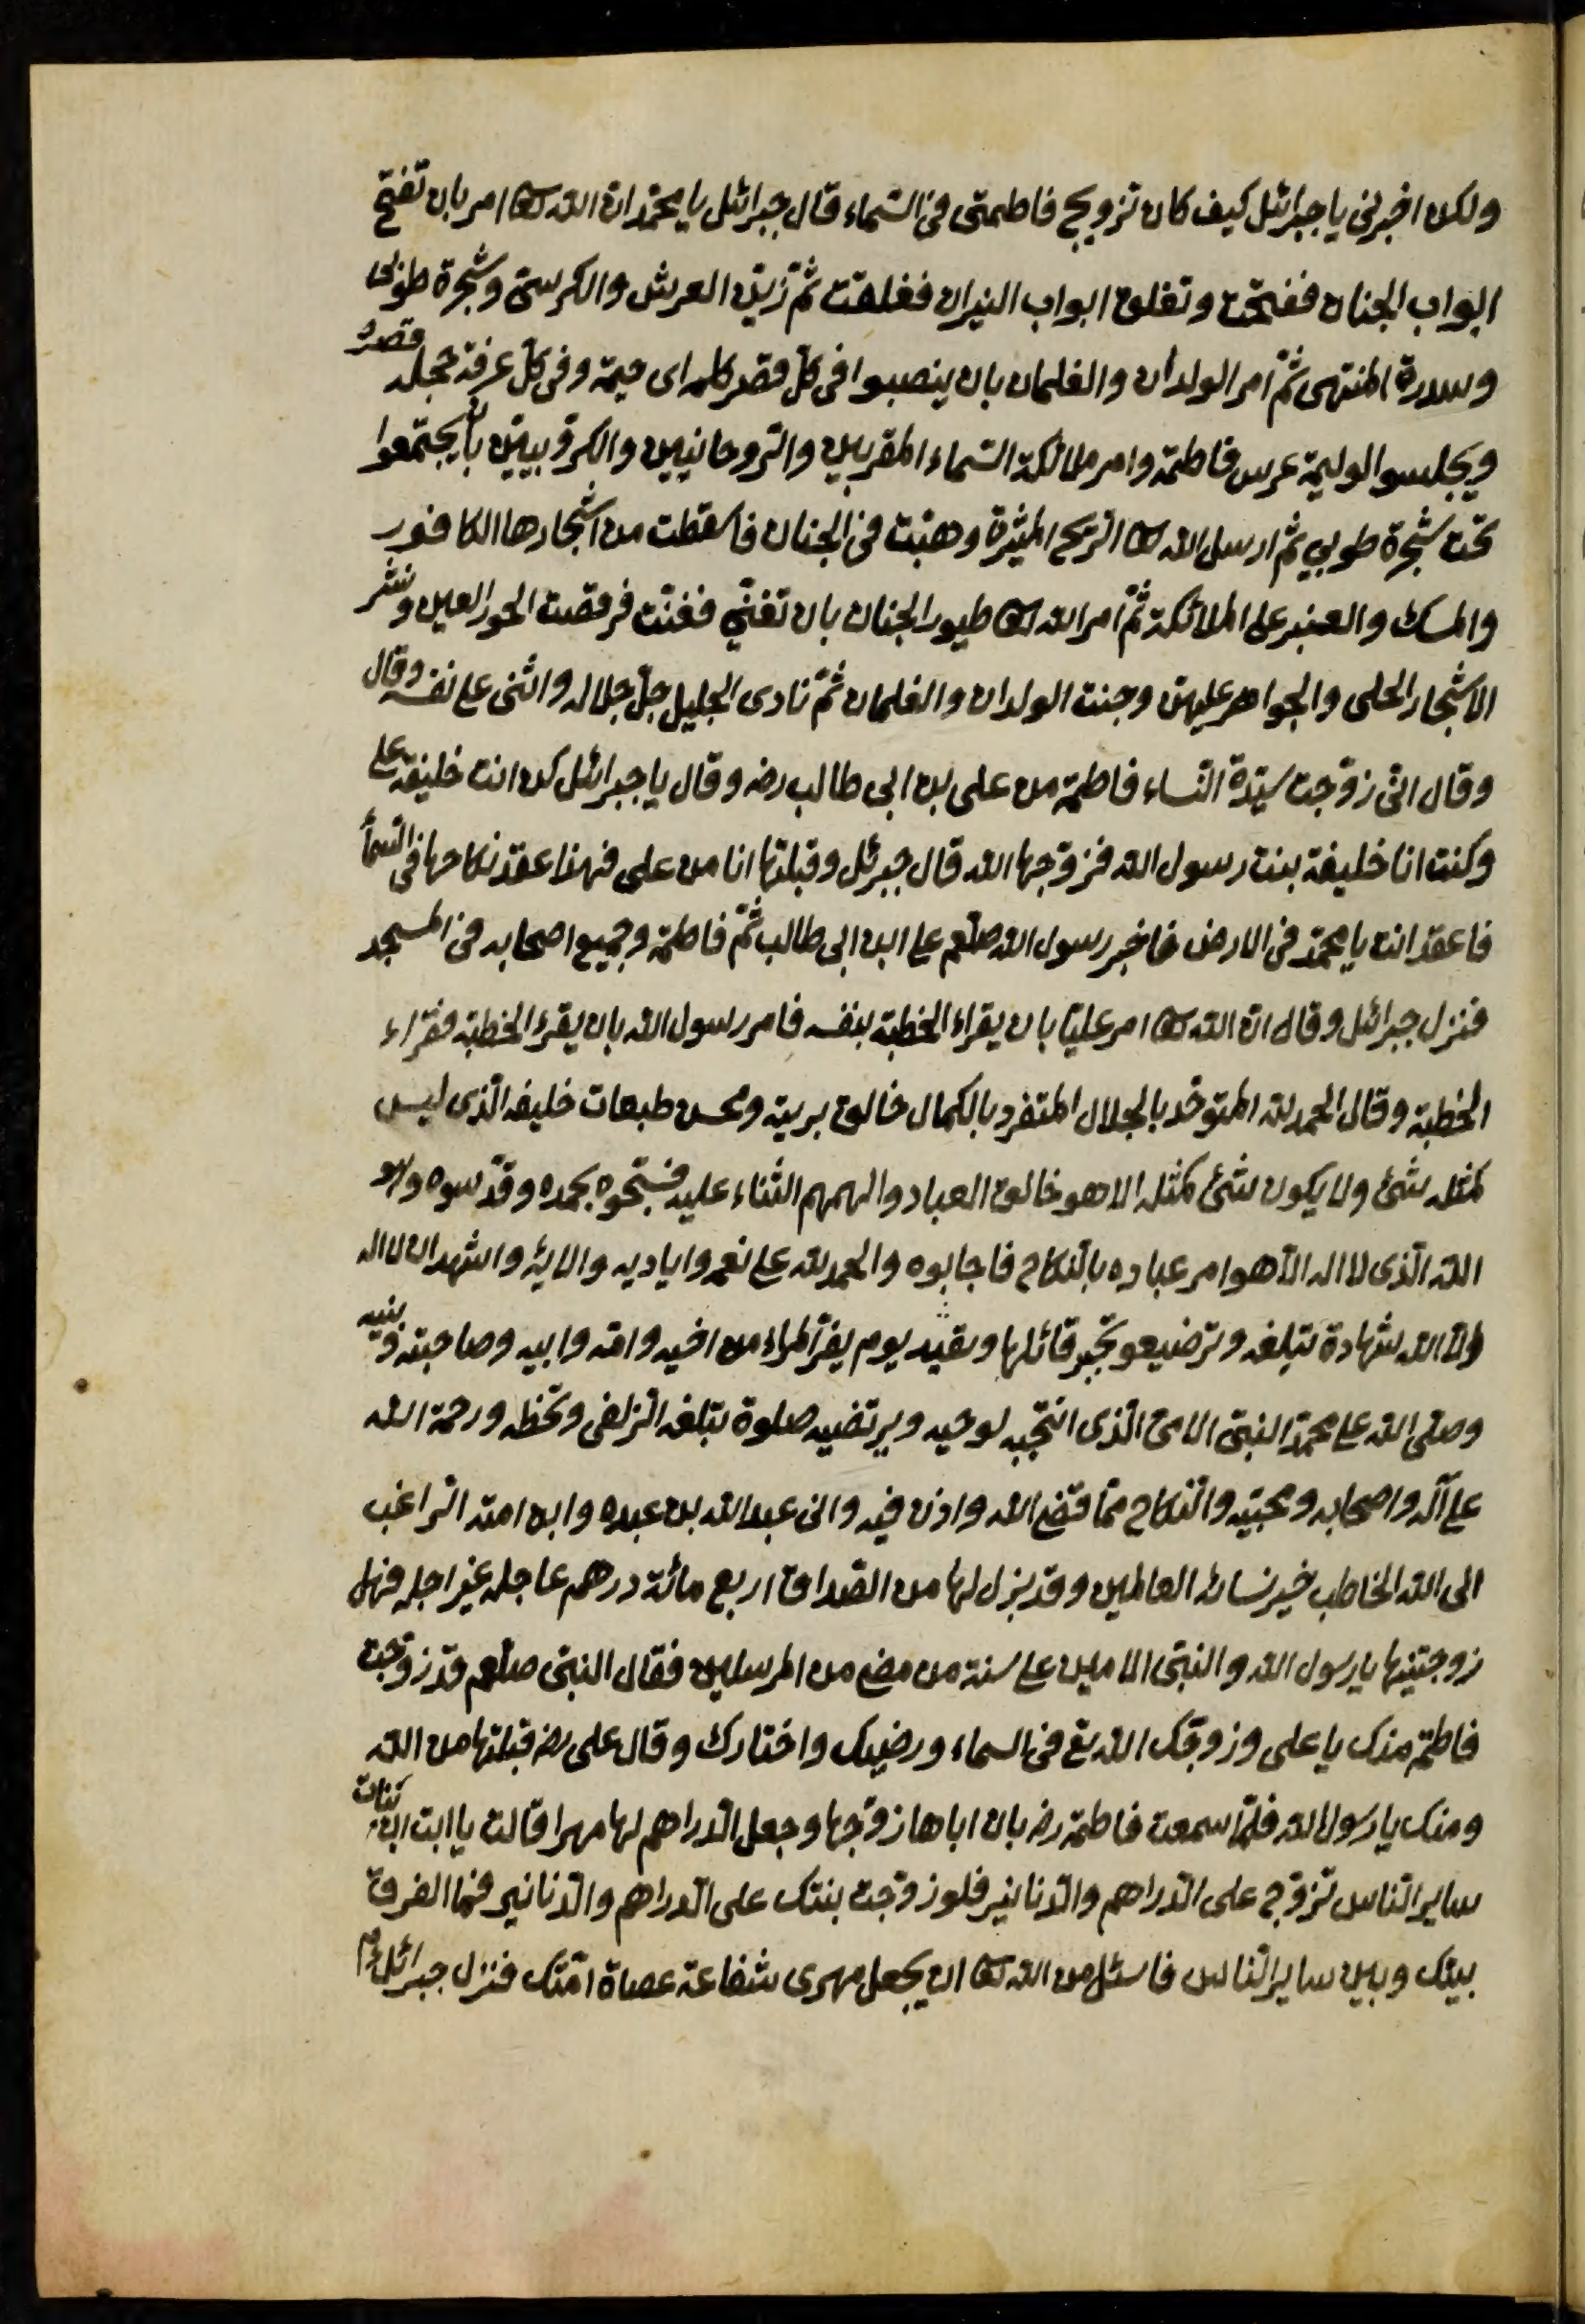 ولكن اخبرنى يا جبرائل كيف كان تزويج فاطمتى فى السّماء قال جبرائل يا محمّد انّ الله تعا امر بان تفتح
ابواب الجنان ففتحت وتغلق ابواب النيران فغلقت ثمّ زيّن العرش والكرسىّ وشجرة طوبى
وسدرة المنتهى ثمّ امر الولدان والغلمان بان ينصبوا فى كلّ قصر كلمه اى خيمة وفى كلّ غرفة حجله
ويجلسوا لوليمة عرس فاطمة وامر ملائكة السّماء المقربين والرّوحانيين والكرّوبيين بان يجتمعوا
تحت شجرة طوبى ثم ارسل الله تعا الرّيح المثيرة وهبّت فى الجنان فاسقطت من اشجارها الكافور
والمسك والعنبر على الملائكة ثمّ امر الله تعا طيور الجنان بان تغنّى فغنّت فرقصت الحور العين ونثر
الاشجار الحلى والجواهر عليهن وجنت الولدان والغلمان ثمّ نادى الجليل جلّ جلاله واثنى على نفسه وقال
وقال انّى زوّجت سيّدة النّساء فاطمة من على بن ابى طالب رضه وقال يا جبرائل كن انت خليفة على
وكنت انا خليفة بنت رسول الله فزوّجها الله قال جبرئل وقبلتها انا من على فهذا عقد نكاحها فى السّمأ
فاعقد انت يا محمّد فى الارض فاخبر رسول الله صلّعم على ابن ابى طالب ثمّ فاطمة وجميع اصحابه فى المسجد
فنزل جبرائل وقال انّ الله تعا امر عليّا بان يقراء الخطبة بنفسه فامر رسول الله بان يقرء الخطبة فقراء
الخطبة وقال الحمد لله المتوحّد بالجلال المتفرد بالكمال خالق بريته ومحسن طبعات خليفه الّذى ليس
كمثله شئ ولا يكون شئ كمثله الا هو خالق العباد والهمهم الثناء عليه فسبّحوه بحمده وقدّسوه وهو
الله الّذى لا اله الّا هو امر عباده بالنّكاح فاجابوه والحمد لله على نعمه واياديه والايه واشهد ان لا اله
الّا الله شهادة تبلغه وترضيه وتجير قائلها وتقيه يوم يفرّ المراء من اخيه وامّه وابيه وصاحبته وبنيه
وصلّى الله على محمّد النبىّ الامىّ الّذى انتجبه لوحيه ويرتضيه صلوة تبلغه الزلفى وتحظه ورحمة الله
على آله واصحابه ومحبّيه والنّكاح ممّا قضى الله واذن فيه وانى عبد الله بن عبده وابن امته الرّاغب
الى الله الخاطب خير نساء العالمين وقد بزل لها من الصّداق اربع مائة درهم عاجله غير اجله فهل
زوجتنيها يا رسول الله والنبىّ الامين على سنة من مضى من المرسلين فقال النبىّ صلّعم قد زوّجت
فاطمة منك يا على وزوّجك الله تع فى السماء ورضيك واختارك وقال على رضه قبلتها من الله
ومنك يا رسول الله فلمّا سمعت فاطمة رضه بان اباها زوّجها وجعل الدّراهم لها مهرا قالت يا ابت انّ بنات
ساير النّاس تزوّج على الدّراهم والدّنانير فلو زوّجت بنتك على الدّراهم والدّنانير فما الفرق
بينك وبين ساير النّاس فاسئل من الله تعا ان يجعل مهرى شفاعة عصاة امّتك فنزل جبرائل